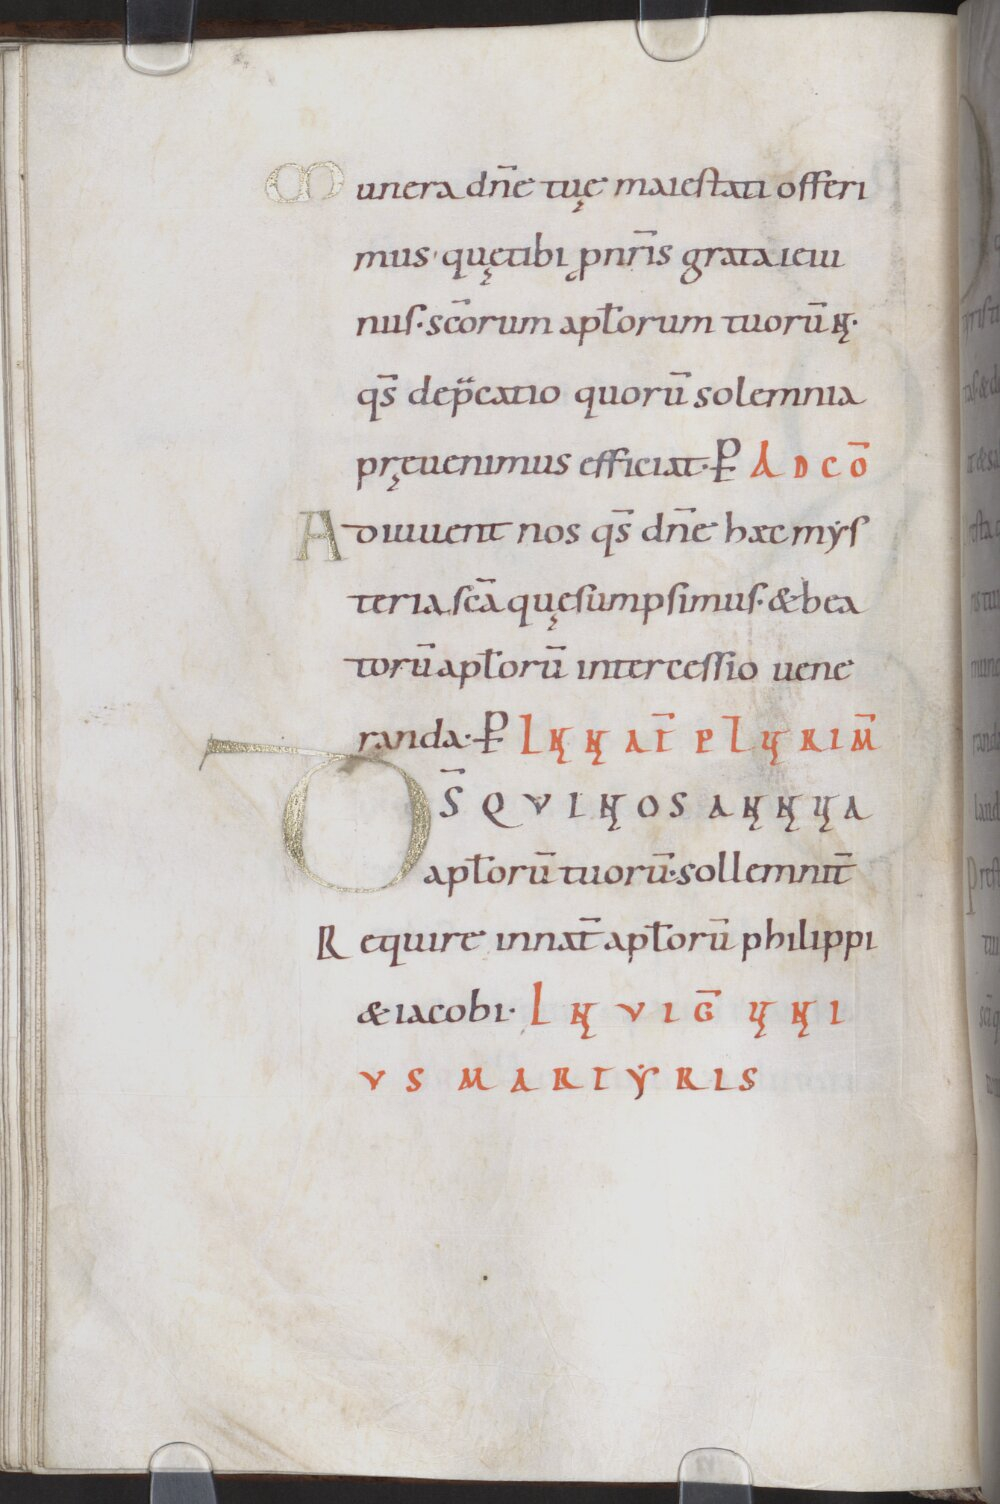 Munera dn̄e tuę maiestati offeri
mus' quętibi ꝓnr̄is grata ieiu
nus· sc̄orum apt̄orum tuorū N·
qs̄ dep̄catio quorū solemnia
pręuenimus efficiat· P̶ AD CŌ
Adiuuent nos qs̄ dn̄e haec mẏs
teria sc̄a quęsumpsimus· & bea
torū apt̄orū intercessio uene
randa· P̶ IN NAT̄ PLURIM̄
DS̄ QVI NOS ANNUA
apt̄orū tuorū· sollemnit̄
Require innat̄ apt̄orū philippi
& iacobi· IN VIḠ UNI
VS MARTẎRIS